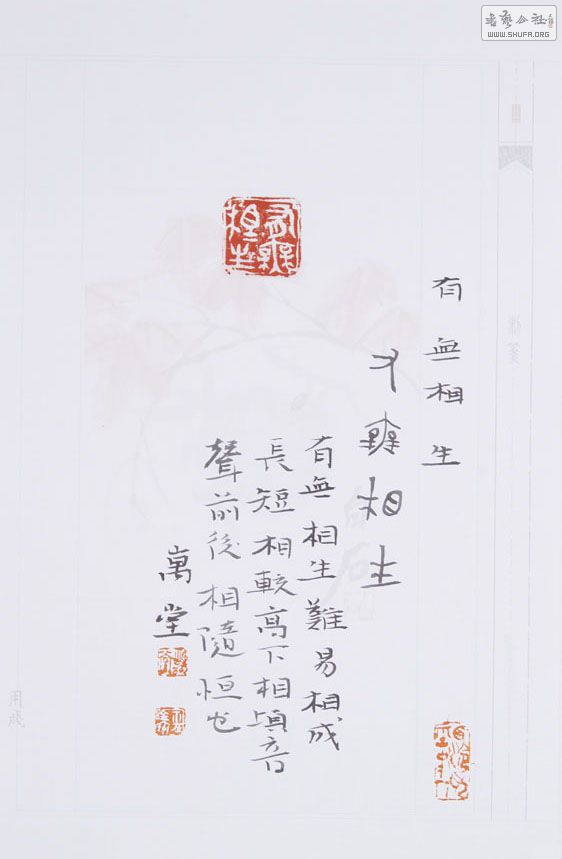 書藝公社
WWW.SHUFA.ORG
有無相生
有無相生
有無相生
有無相生難易相成
長短相較高下相傾音
聲前後相隨恒也
萬堂